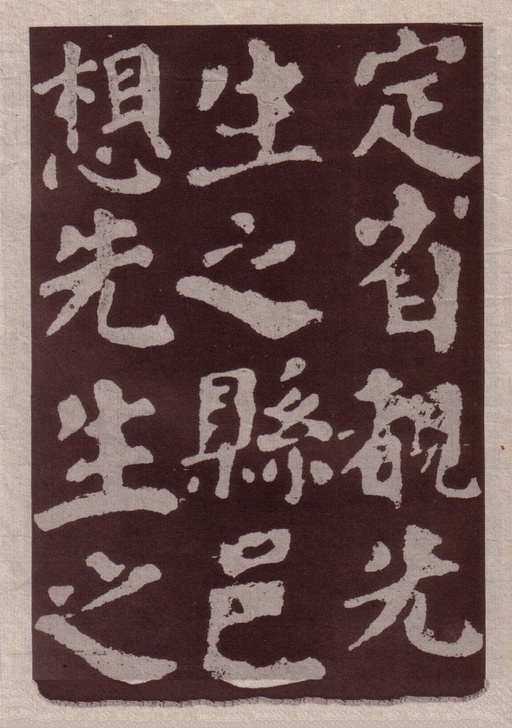 定省觀先
生之縣邑
想先生之